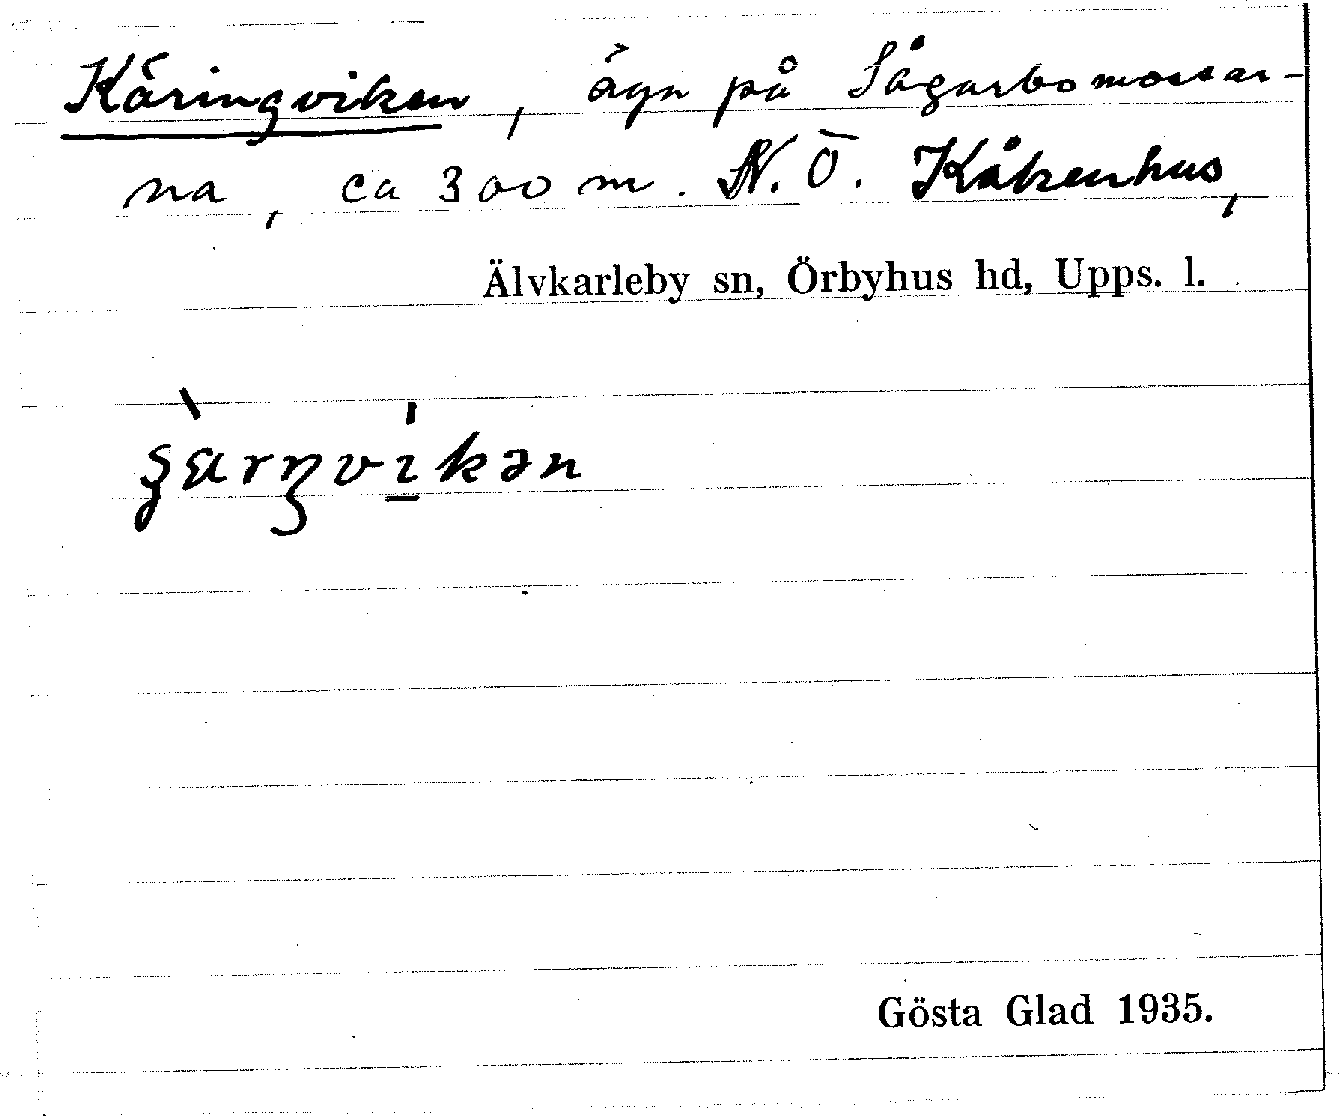 Käringviken, ägn på Sågarbomossar-
na, ca 300 m. N.Ö. Kåkenhus,
Älvkarleby sn, Örbyhus hd, Upps. l.
Gösta Glad 1935.